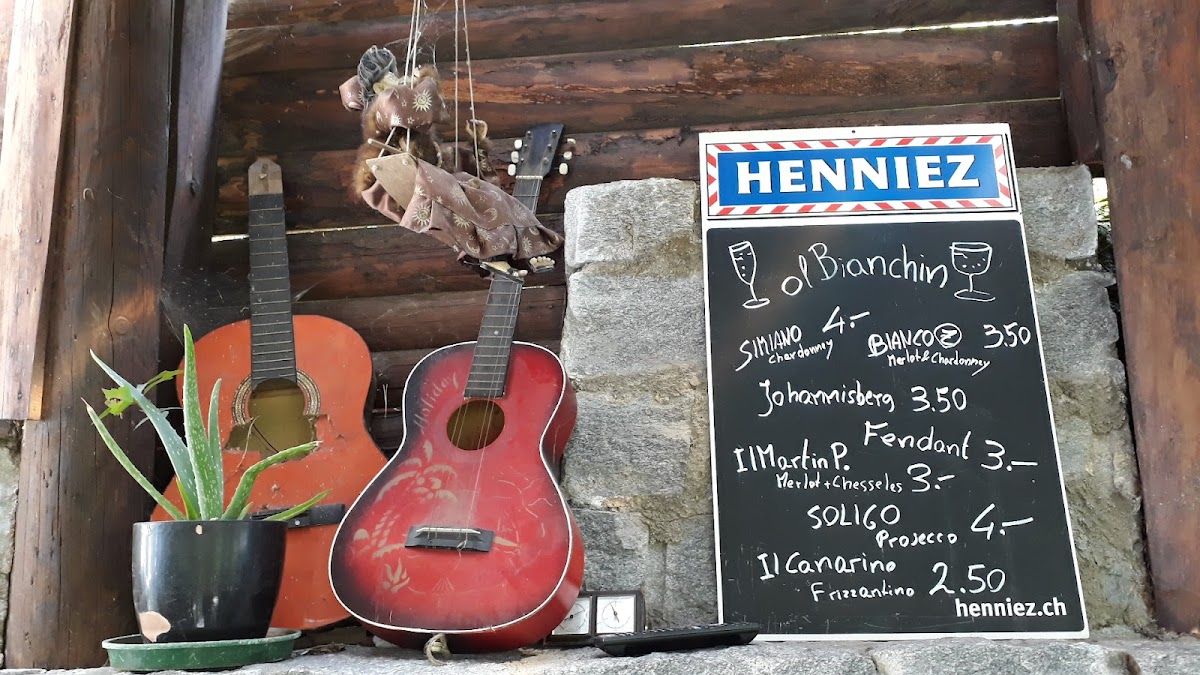 HENNIEZ
ol Bianchin
SIMIANO 4.-
Chardonney
BIANCO Z 3.50
Merlot & Chardonney
Johannisberg 3.50
Fendant 3.-
Il Martin P.
Merlot + Chesseles 3.-
SOLIGO
Prosecco 4.-
Il Canarino
Frizzantino 2.50
henniez.ch
Holiday